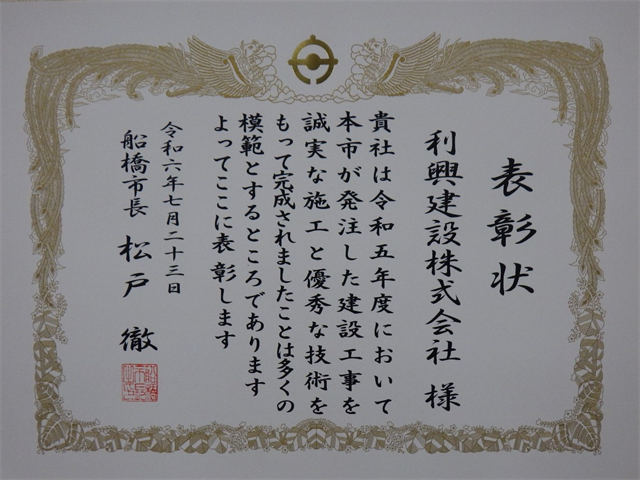 表彰状
利興建設株式会社 様
貴社は令和五年度において
本市が発注した建設工事を
誠実な施工と優秀な技術を
もって完成されましたことは多くの
模範とするところであります
よってここに表彰します
令和六年七月二十三日
船橋市長 松戸 徹